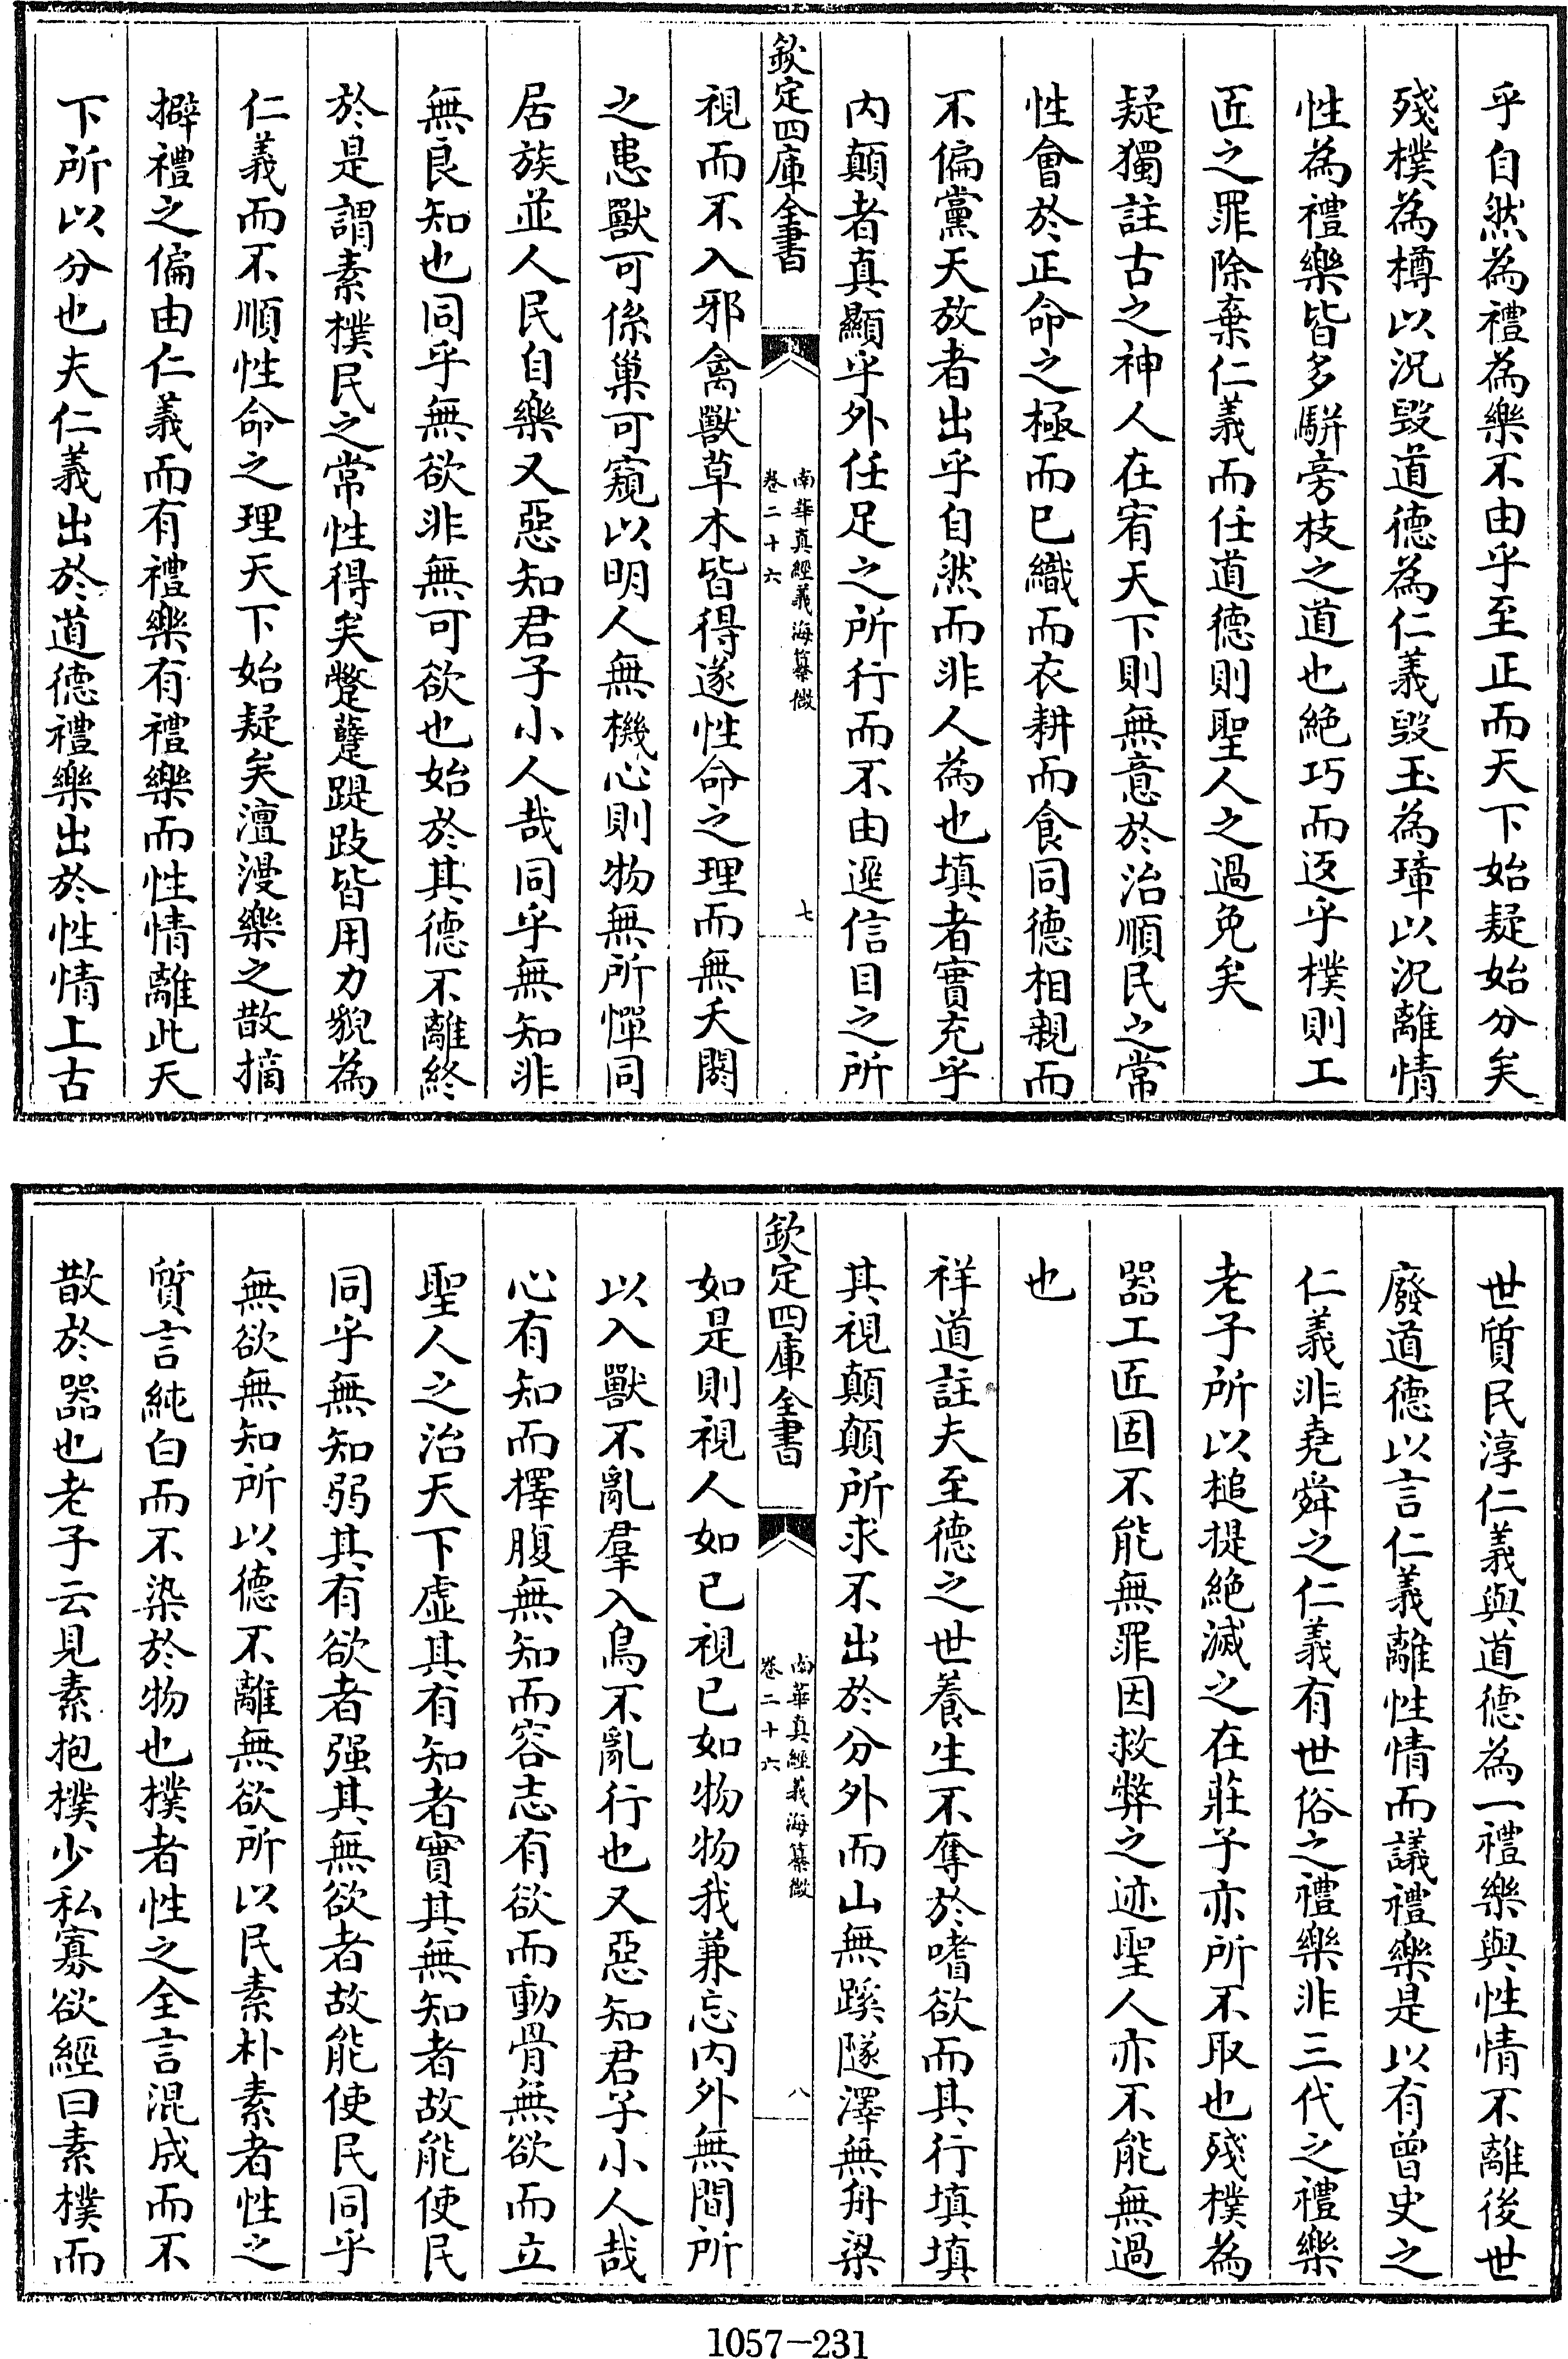 乎自然為禮為樂不由乎至正而天下始疑始分矣
殘樸為樽以況毀道德為仁義毀玉為璋以況離情
性為禮樂皆多駢旁枝之道也絶巧而返乎樸則工
匠之罪除棄仁義而任道德則聖人之過免矣
疑獨註古之神人在宥天下則無意於治順民之常
性會於正命之極而已織而衣耕而食同德相親而
不偏黨天放者出乎自然而非人為也填者實充乎
内顛者真顯乎外任足之所行而不由逕信目之所
欽定四庫全書
南華真經義海纂微
卷二十六
七
視而不入邪禽獸草木皆得遂性命之理而無夭閼
之患獸可係巢可窺以明人無機心則物無所憚同
居族並人民自樂又惡知君子小人哉同乎無知非
無良知也同乎無欲非無可欲也始於其德不離終
於是謂素樸民之常性得矣蹩躠踶跂皆用力貌為
仁義而不順性命之理天下始疑矣澶漫樂之散摘
擗禮之偏由仁義而有禮樂有禮樂而性情離此天
下所以分也夫仁義出於道德禮樂出於性情上古
世質民淳仁義與道德為一禮樂與性情不離後世
廢道德以言仁義離性情而議禮樂是以有曾史之
仁義非堯舜之仁義有世俗之禮樂非三代之禮樂
老子所以槌提絶滅之在莊子亦所不取也殘樸為
器工匠固不能無罪因救弊之迹聖人亦不能無過
也
祥道註夫至德之世養生不奪於嗜欲而其行填填
其視顛顛所求不出於分外而山無蹊隧澤無舟梁
欽定四庫全書
南華真經義海纂微
卷二十六
八
如是則視人如已視已如物物我兼忘内外無間所
以入獸不亂羣入鳥不亂行也又惡知君子小人哉
心有知而擇腹無知而容志有欲而動骨無欲而立
聖人之治天下虚其有知者實其無知者故能使民
同乎無知弱其有欲者强其無欲者故能使民同乎
無欲無知所以德不離無欲所以民素朴素者性之
質言純白而不染於物也樸者性之全言混成而不
散於器也老子云見素抱樸少私寡欲經曰素樸而
1057-231